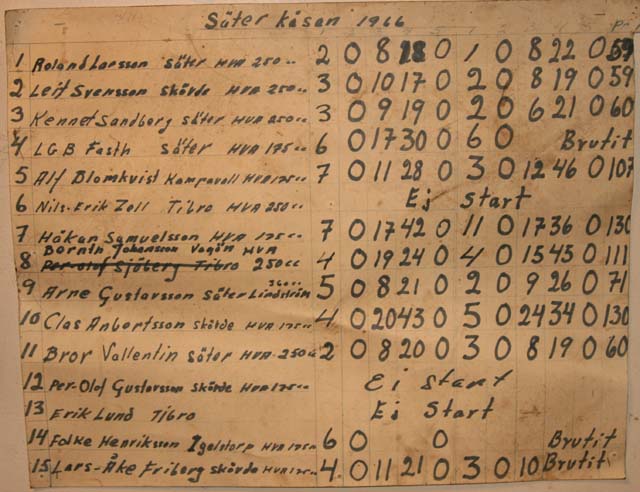 Säter kåsan 1966
1 Roland Larsson Säter HVA 250cc 2 0 8 18 0 1 0 8 22 0 59
2 Leif Svensson Skövde HVA 250cc 3 0 10 17 0 2 0 8 19 0 59
3 Kennet Sandberg Säter HVA 250cc 3 0 9 19 0 2 0 6 21 0 60
4 LGB Fasth Säter HVA 175cc 6 0 17 30 0 6 0 Brutit
5 Alf Blomkvist HVA 175cc 7 0 11 28 0 3 0 12 46 0 107
6 Nils-Erik Zell Tibro HVA 250cc Ej Start
7 Håkan Samuelsson HVA 175cc 7 0 17 42 0 11 0 17 36 0 130
Johansson HVA
8 Per-olof Sjöberg Tibro 250cc 4 0 19 24 0 4 0 15 45 0 111
360cc
9 Arne Gustavsson Säter Lindström 5 0 8 21 0 2 0 9 26 0 71
10 Clas Anbertsson Skövde HVA 175cc 4 0 20 43 0 5 0 24 34 0 130
11 Bror Vallentin Säter HVA 250cc 2 0 8 20 0 3 0 8 19 0 60
12 Per-Olof Gustavsson Skövde HVA 175cc Ej Start
13 Erik Lund Tibro Ej Start
14 Folke Henriksson Igelstorp HVA 175cc 6 0 0 Brutit
15 Lars-Åke Friberg Skövde HVA 175cc 4 0 11 21 0 3 0 10 Brutit